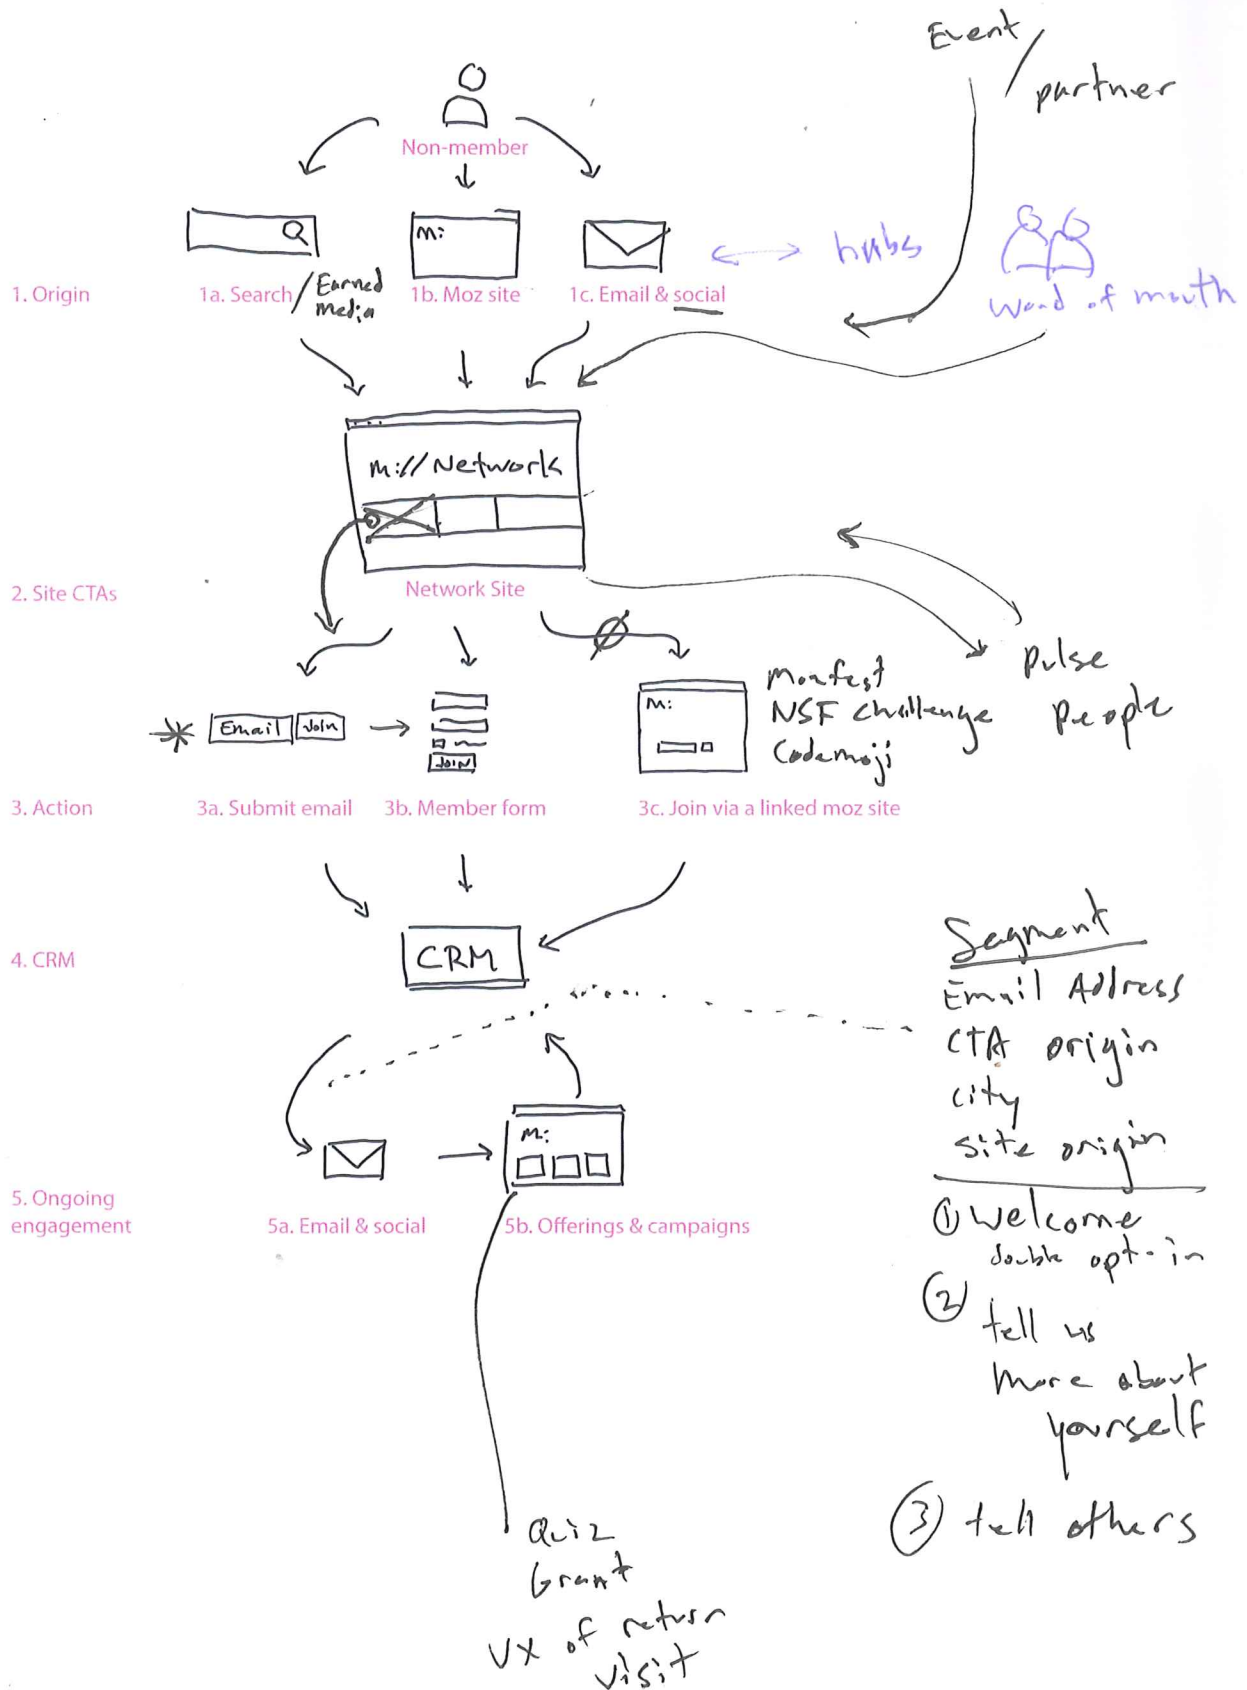 Event /
partner
Non-member
m:
hubs
word of mouth
1. Origin
1a. Search / Earned
media
1b. Moz site
1c. Email & social
m:// Network
2. Site CTAs
Network Site
Pulse
People
Email Join
JOIN
m:
Mozfest
NSF challenge
Codemoji
3. Action
3a. Submit email
3b. Member form
3c. Join via a linked moz site
4. CRM
CRM
Segment
Email Address
CTA origin
city
site origin
m:
5. Ongoing
engagement
5a. Email & social
5b. Offerings & campaigns
① Welcome
double opt-in
② tell us
more about
yourself
③ tell others
Quiz
Grant
UX of return
visit